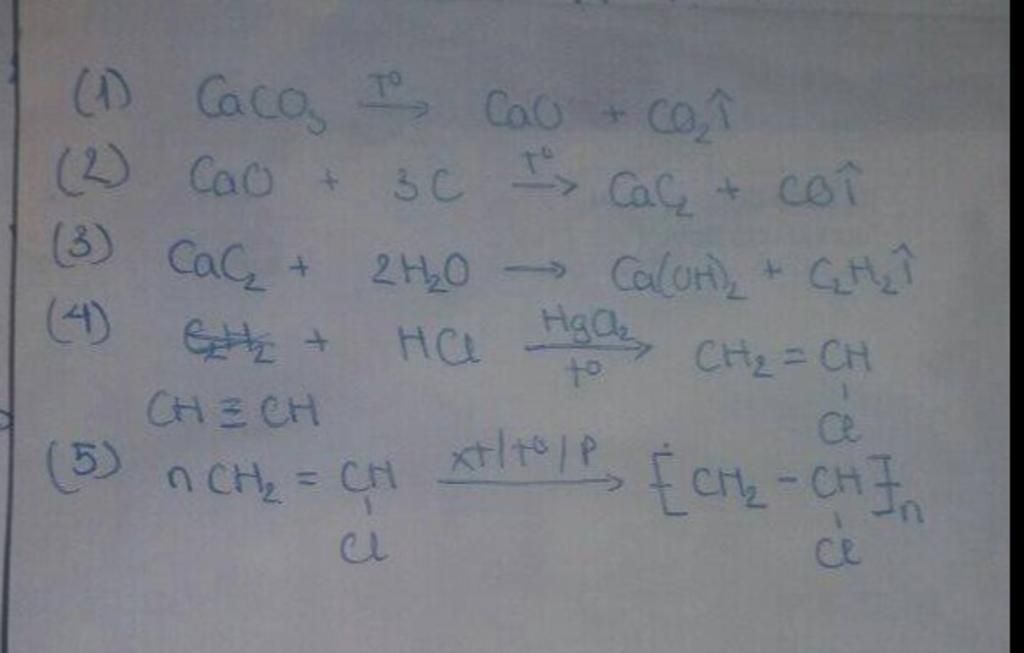 (1) CaCO₃ →(T°) CaO + CO₂↑
(2) CaO + 3C →(T°) CaC₂ + CO↑
(3) CaC₂ + 2H₂O → Ca(OH)₂ + C₂H₂↑
(4) C₂H₂ + HCl →(HgCl₂, t°) CH₂ = CH
CH ≡ CH Cl
(5) nCH₂ = CH →(xt/t°/P) [CH₂ - CH]n
Cl Cl